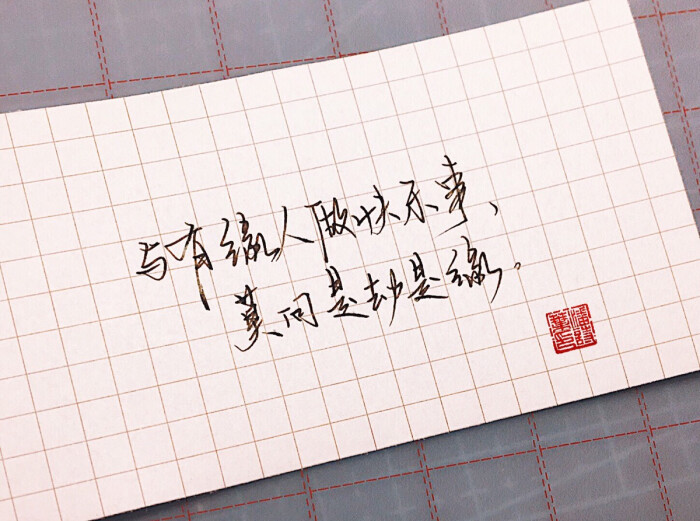 与有缘人做快乐事、
莫问是劫是缘。